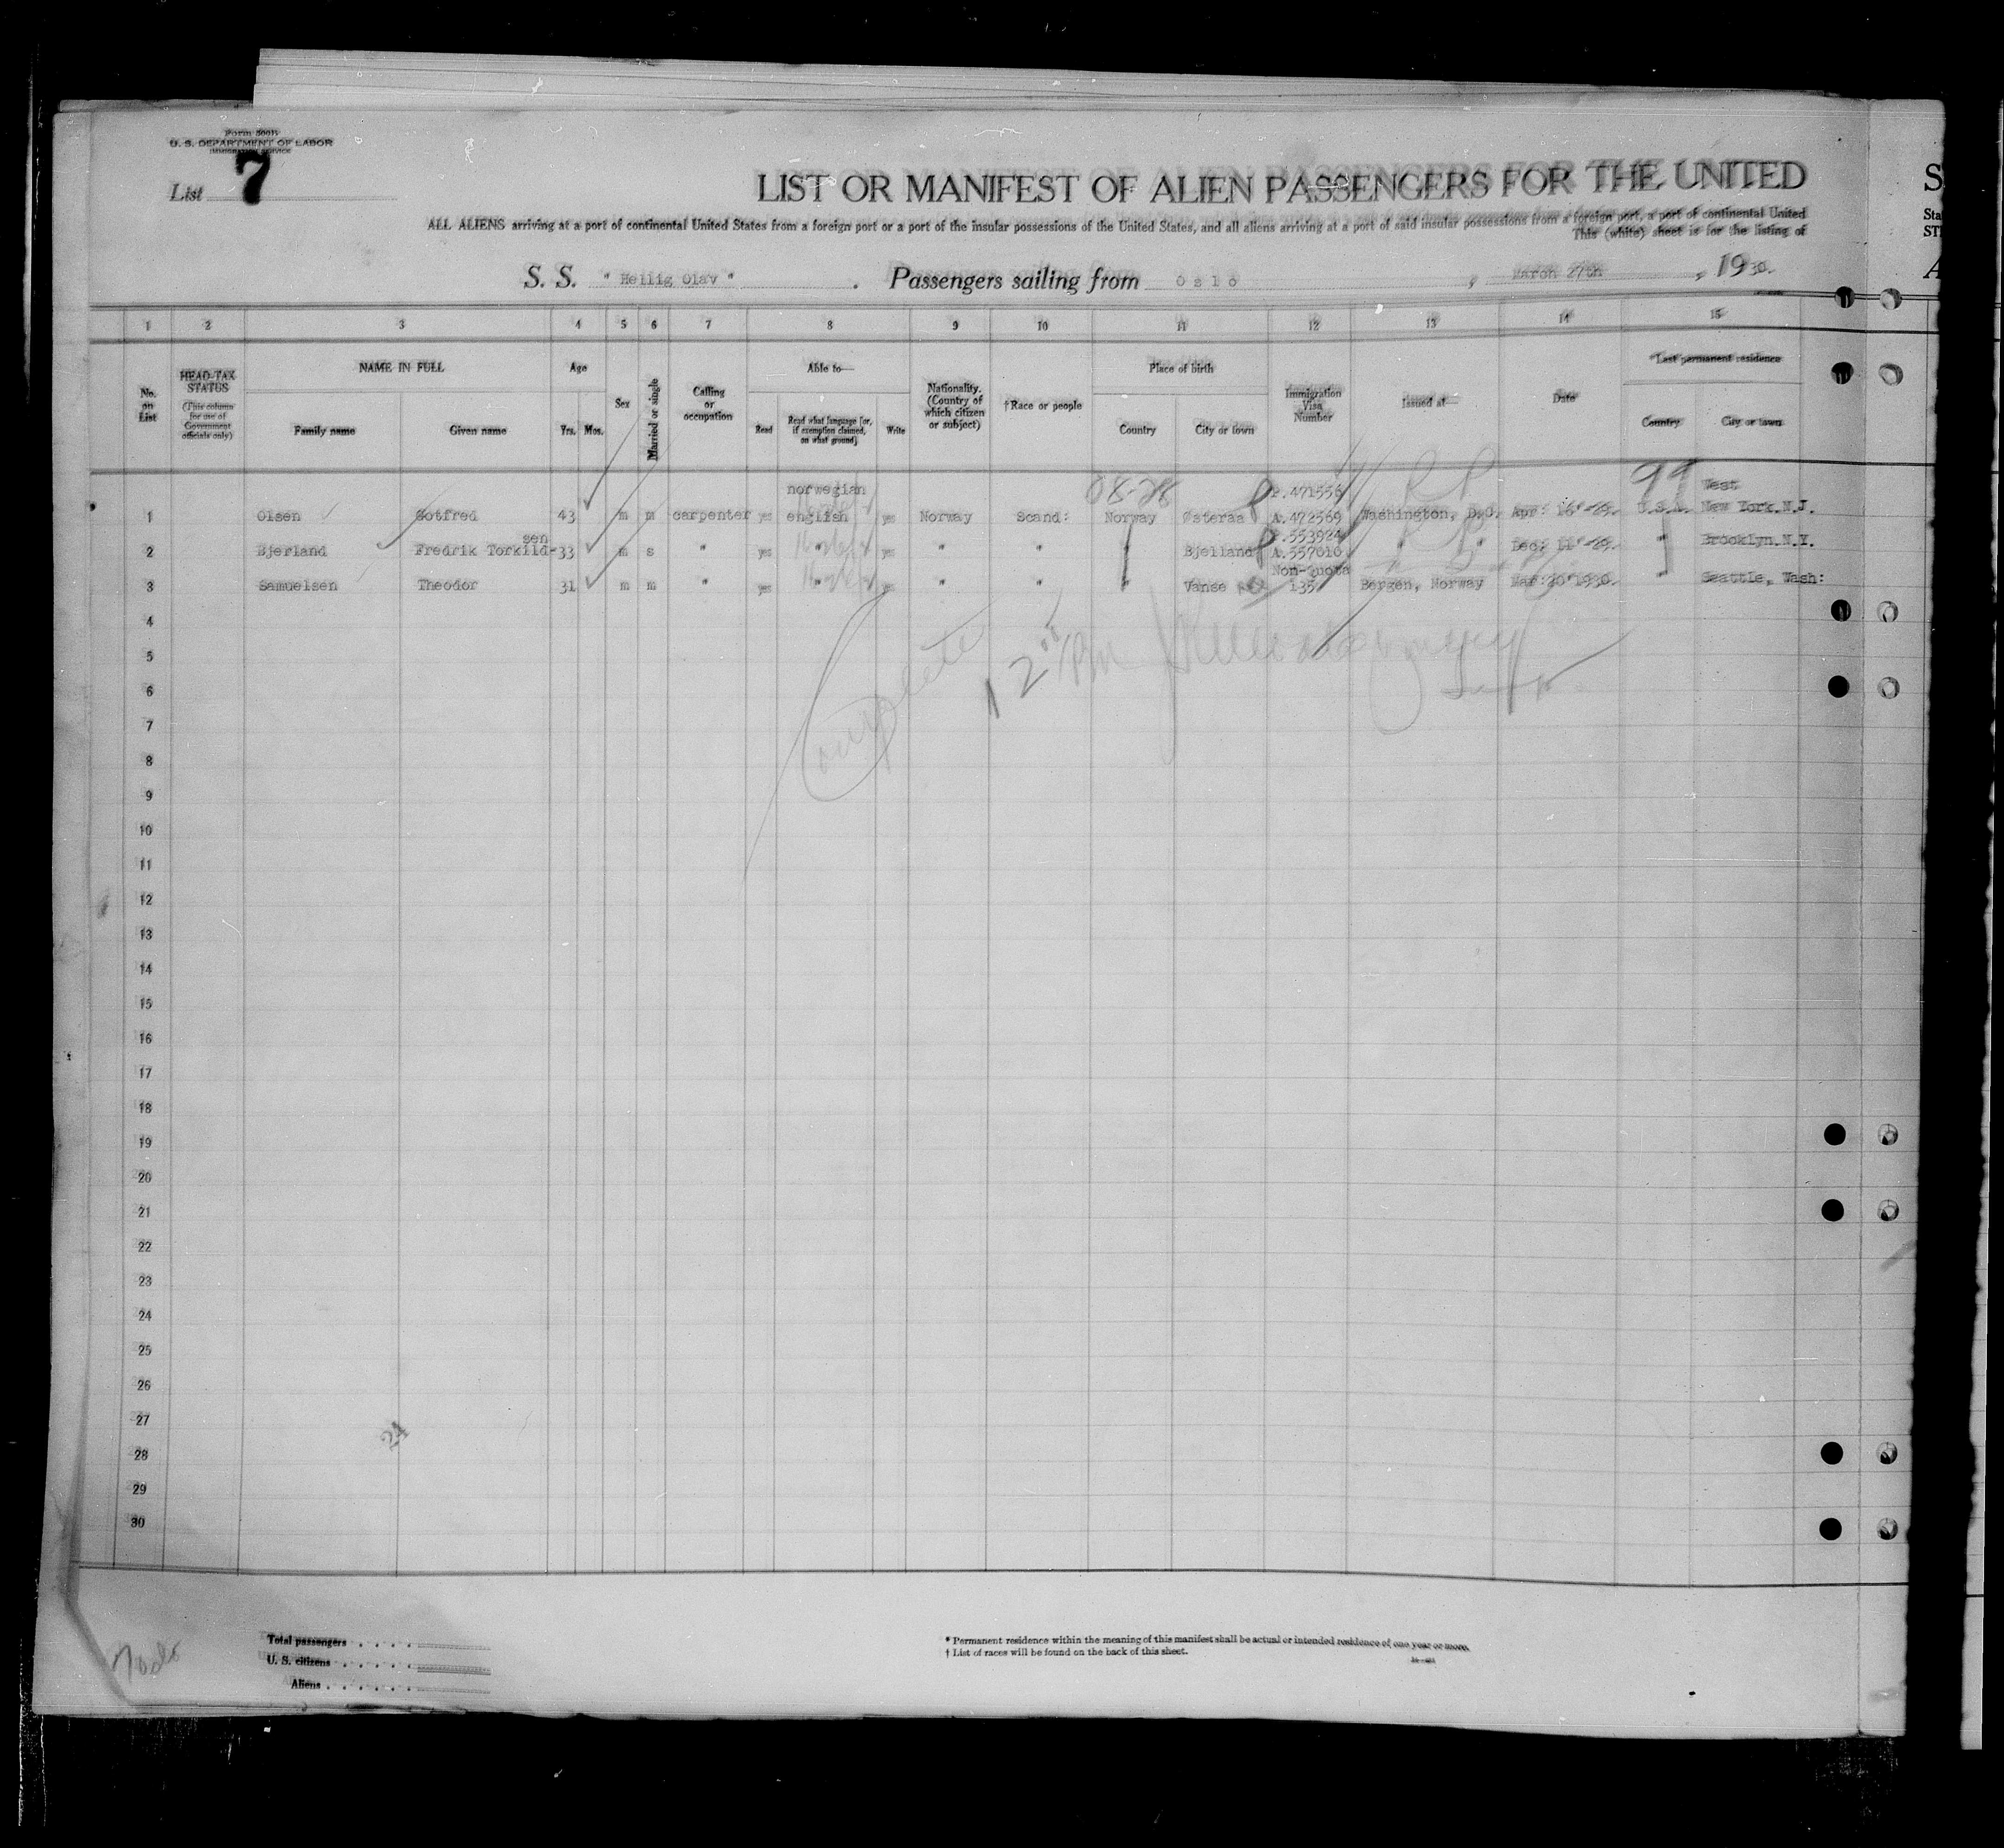 Form 500B
U. S. DEPARTMENT OF LABOR
IMMIGRATION SERVICE
List 7
LIST OR MANIFEST OF ALIEN PASSENGERS FOR THE UNITED
ALL ALIENS arriving at a port of continental United States from a foreign port or a port of the insular possessions of the United States, and all aliens arriving at a port of said insular possessions from a foreign port, a port of continental United
This (white) sheet is for the listing of
S. S. "Hellig Olav". Passengers sailing from Oslo, March 27th, 1930.
1 2 3 4 5 6 7 8 9 10 11 12 13 14 15
No. on List
HEAD-TAX STATUS
(This column for use of Government officials only)
NAME IN FULL
Family name Given name
Age
Yrs. Mos.
Sex
Married or single
Calling or occupation
Able to—
Read
Read what language [or, if exemption claimed, on what ground]
Write
Nationality. (Country of which citizen or subject)
†Race or people
Place of birth
Country City or town
Immigration Visa Number
Issued at—
Date
*Last permanent residence
Country City or town
08-28 99
norwegian P.471556 West
1 Olsen Gotfred 43 m m carpenter yes english yes Norway Scand: Norway Østeraa A.472569 Washington, D.C. Apr: 16'-29. U.S.A. New York.N.J.
sen P.553924
2 Bjerland Fredrik Torkild- 33 m s " yes " yes " " Bjelland A.557010 " Dec; 11'-29. " Brooklyn.N.Y.
Non-quota
3 Samuelsen Theodor 31 m m " yes " yes " " " Vanse 135 Bergen, Norway Mar:20'1930. " Seattle, Wash:
4
5
6
7
8
9
10
11
12
13
14
15
16
17
18
19
20
21
22
23
24
25
26
27
28
29
30
Complete
24
Total passengers
U. S. citizens
Aliens
* Permanent residence within the meaning of this manifest shall be actual or intended residence of one year or more.
† List of races will be found on the back of this sheet.